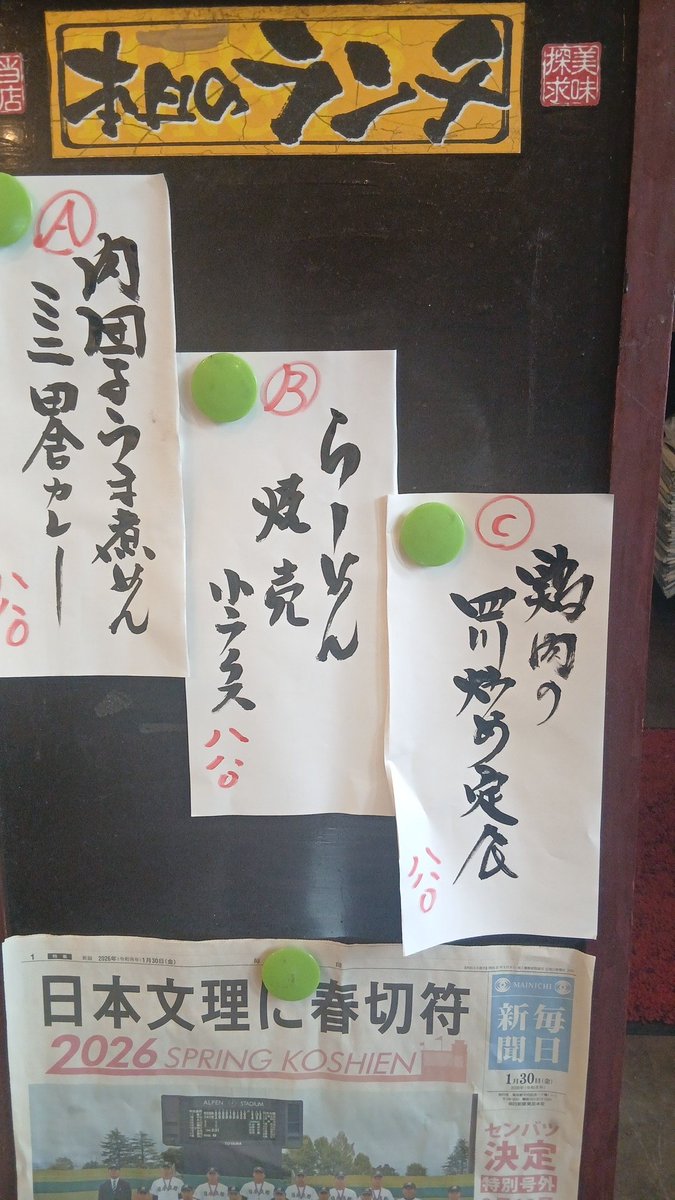 本日のランチ
当店
美味
探求
A
肉団子うま煮めん
ミニ田舎カレー
八八〇
B
らーめん
焼売
小ライス
八八〇
C
鶏肉の
四川炒め定食
八八〇
1 特集 2026年(令和8年)1月30日(金)
日本文理に春切符
2026 SPRING KOSHIEN
MAINICHI
毎日
新聞
1月30日(金)
センバツ
決定
特別号外
ALPEN STADIUM
TOYAMA